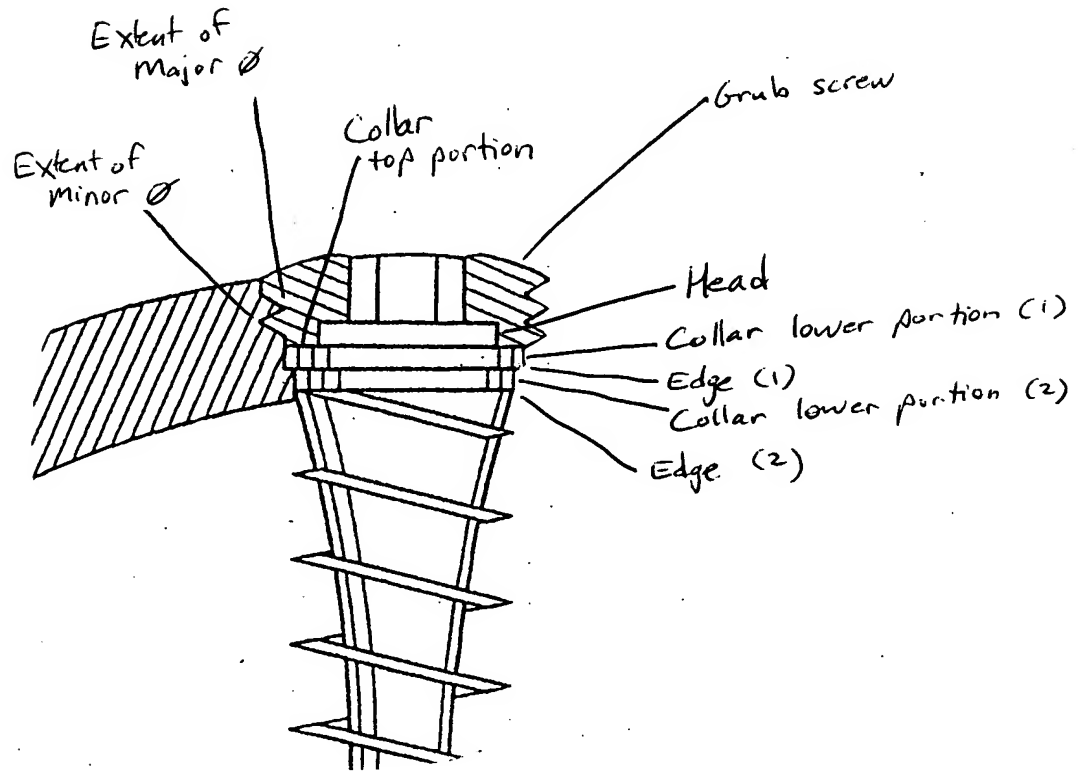 Extent of
Major Ø
Collar
top portion
Extent of
Minor Ø
Grub screw
Head
Collar lower portion (1)
Edge (1)
Collar lower portion (2)
Edge (2)